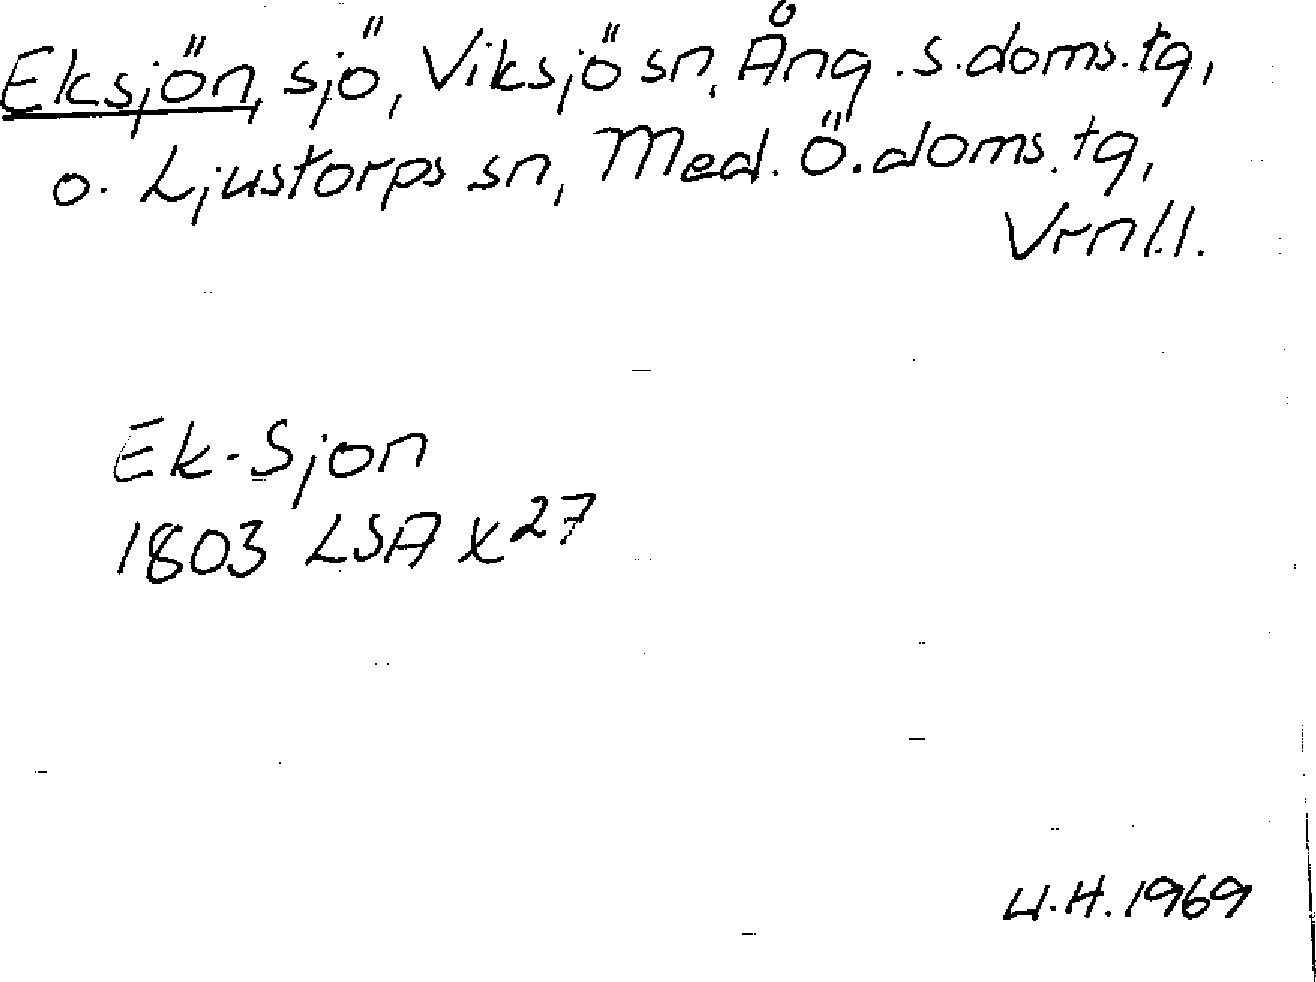 Eksjön, sjö, Viksjö sn, Ång. s. doms. tg,
o. Ljustorps sn, Med. Ö. doms. tg,
Vrnl.l.
Ek-Sjon
1803 LSA x27
U.H. 1969